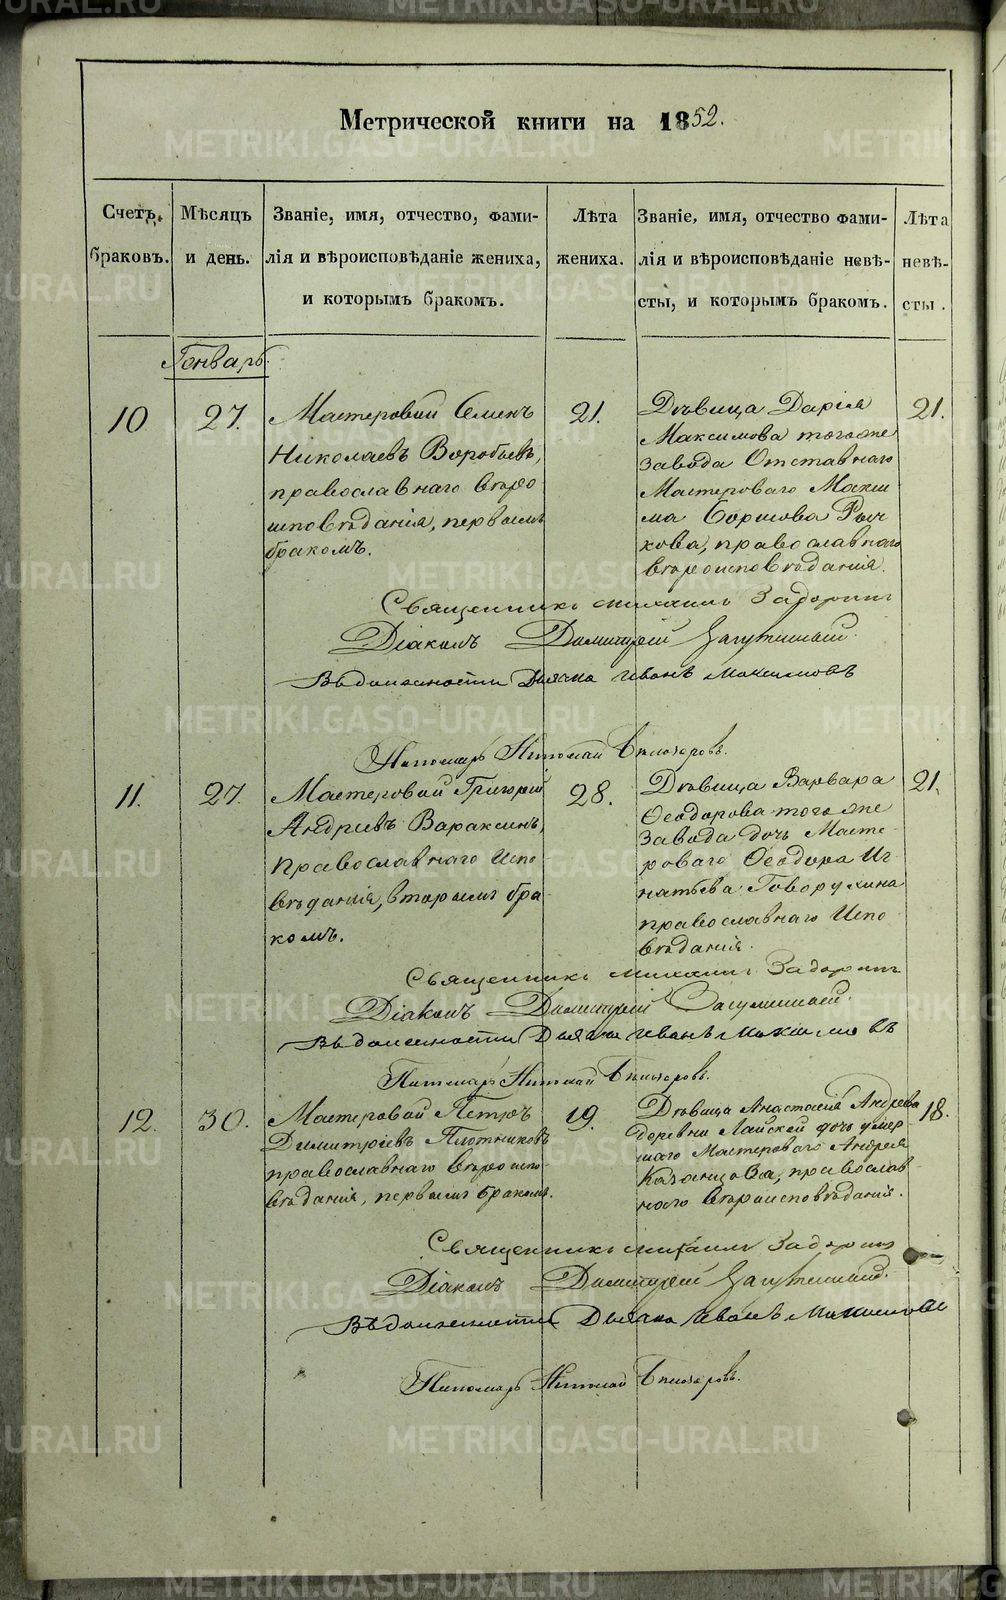 Метрической книги на 1852.
Счетъ браковъ.
Мѣсяцъ и день.
Званіе, имя, отчество, фами-
лія и вѣроисповѣданіе жениха,
и которымъ бракомъ.
Лѣта
жениха.
Званіе, имя, отчество фами-
лія и вѣроисповѣданіе невѣ-
сты, и которымъ бракомъ.
Лѣта
невѣ-
сты.
Генварь.
10
27.
Мастеровой Семенъ
Николаевъ Воробьевъ,
православнаго вѣро
исповѣданія, первымъ
бракомъ.
21.
Дѣвица Дарія
Максимова тогоже
завода Отставнаго
Мастероваго Макси
ма Рыч
кова, православнаго
вѣроисповѣданія.
21.
Священникъ Михаилъ Задоринъ
Діаконъ Димитрій
Въ должности Дьячка Иванъ Максимовъ
Пономарь Николай
11.
27.
Мастеровой Григорій
Андриевъ Вараксинъ,
Православнаго Испо
вѣданія, вторымъ бра
комъ.
28.
Дѣвица Варвара
Ѳеодорова тогоже
Завода дочь Масте-
роваго Ѳеодора Иг
натьева Говорухина
православнаго Испо
вѣданія.
21.
Священникъ Михаилъ Задоринъ
Діаконъ Димитрій
Въ должности Дьячка Иванъ Максимовъ
Пономарь Николай
12.
30.
Мастеровой Петръ
Димитріевъ Плотниковъ
православнаго вѣроиспо-
вѣданія, первымъ бракомъ.
19.
Дѣвица Анастасія Андреева
деревни Лайской дочь умер-
шаго Мастероваго Андрея
Казанцова, православ
наго вѣроисповѣданія.
18.
Священникъ Михаилъ Задоринъ
Діаконъ Димитрій
Въ должности Дьячка Иванъ Максимовъ
Пономарь Николай
METRIKI.GASO-URAL.RU